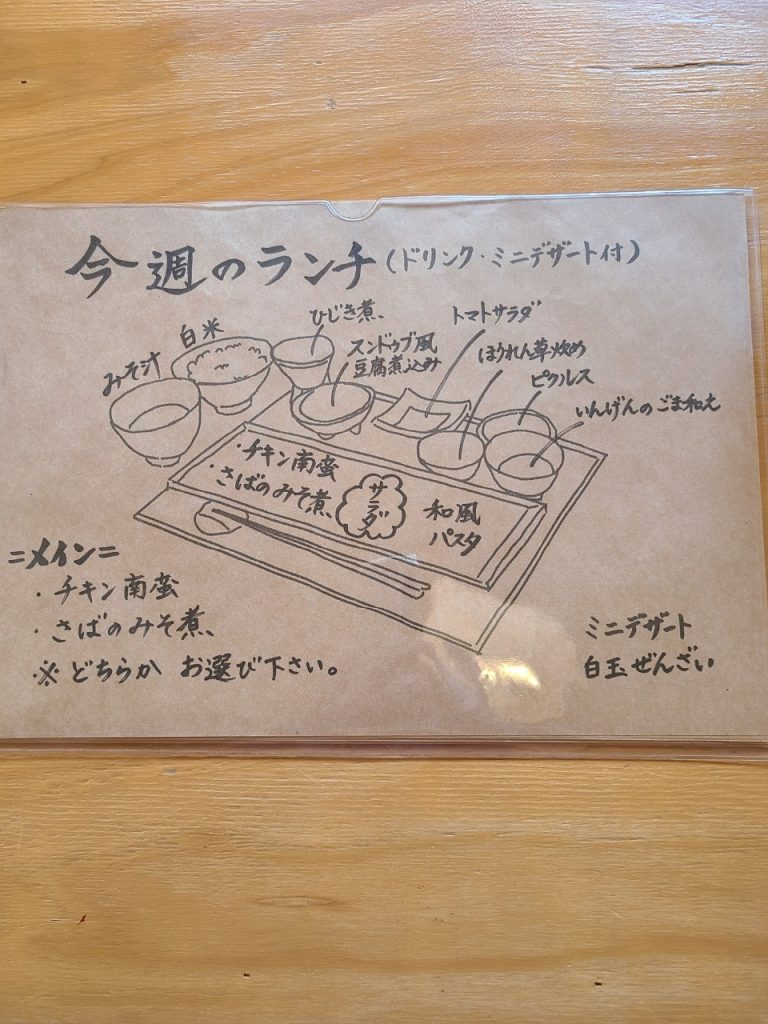 今週のランチ(ドリンク・ミニデザート付)
ひじき煮
トマトサラダ
白米
スンドゥブ風
豆腐煮込み
ほうれん草炒め
みそ汁
ピクルス
いんげんのごま和え
・チキン南蛮
・さばのみそ煮
サラダ
和風
パスタ
=メイン=
・チキン南蛮
・さばのみそ煮
※どちらか お選び下さい。
ミニデザート
白玉ぜんざい